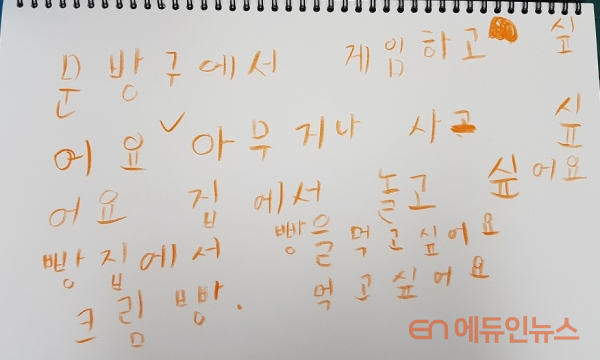 문방구에서 게임하고 싶
어요 아무거나 사고 싶
어요 집에서 놀고 싶어요
빵집에서 빵을 먹고싶어요
크림빵. 먹고싶어요
en 에듀인뉴스